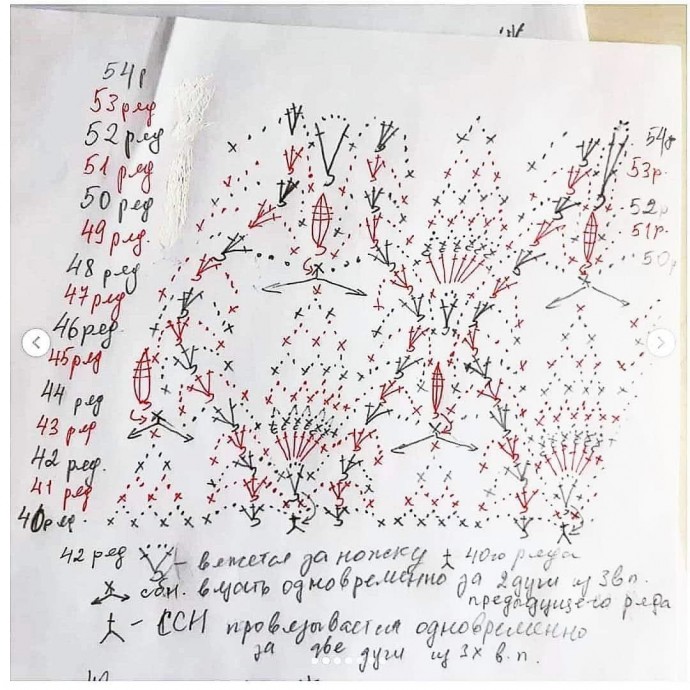 54р
53 ряд
52 ряд
51 ряд
50 ряд
49 ряд
48 ряд
47 ряд
46 ряд
45 ряд
44 ряд
43 ряд
42 ряд.
41 ряд
40 ряд.
54р
53р.
52р
51р.
50р
42 ряд - вяжется за ножку 40го ряда
- сбн. вязать одновременно за 2 дуги из 3 в.п.
предыдущего ряда
- ССН провязывается одновременно
за две дуги из 3х в.п.